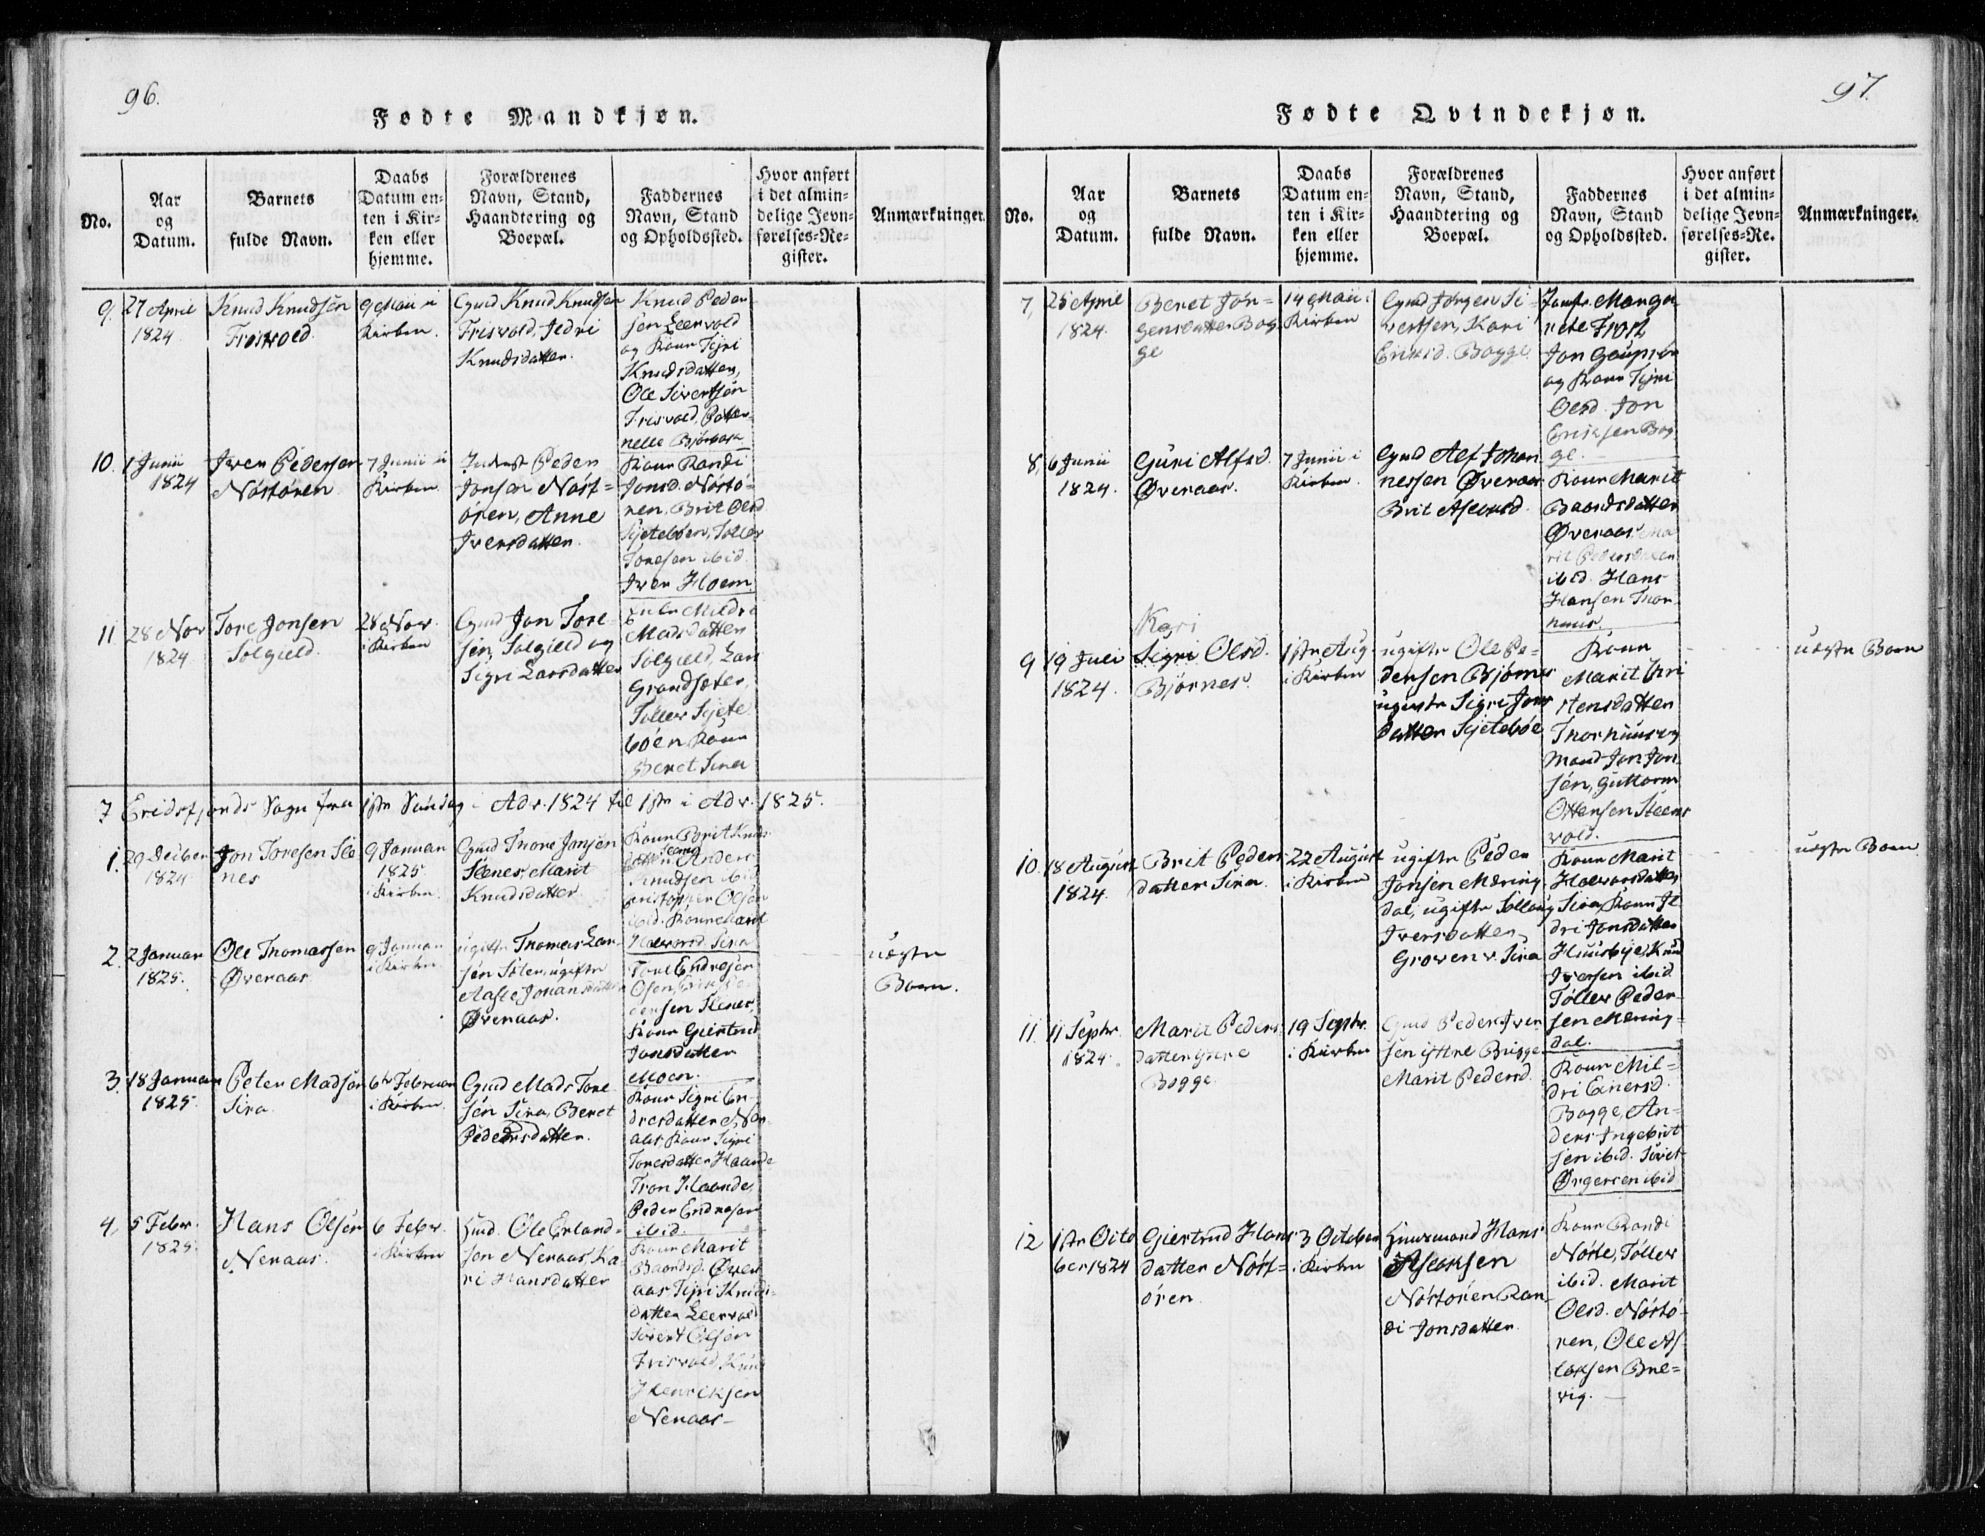 96.
Fødte Mandkjøn.
No.
Aar
og
Datum.
Barnets
fulde Navn.
Daabs
Datum en-
ten i Kir-
ken eller
hjemme.
Forældrenes
Navn, Stand,
Haandtering og
Boepæl.
Faddernes
Navn, Stand
og Opholdssted.
Hvor anført
i det almin-
delige Jevn-
førelses-Re-
gister.
Anmærkninger.
9.
27 April
1824
Knud Knudsøn
Frisvold
9 Maii i
Kirken.
Gmd Knud Knudsen
Frisvold, Sidri
Knudsdatter.
Knud Peder-
sen Leervold
og Kone Sigri
Knudsdatter,
Ole Sivertsøn
Frisvold, Petter-
nelle
10.
1 Junii
1824
Iver Pedersen
Nöstören
7 Junii i
Kirken
Peder
Jonsen Nöst-
ören, Anne
Iversdatter.
Kone Randi
Jonsd. Nöstö-
ren, Brit Olsd
Syltebøen, Toller
Toresen ibid.
Iver Hoem.
11
28 Nov
1824
Tore Jonsen
Solgield.
28 Nov.
i Kirken
Gmd Jon Tore-
sen, Solgield og
Sigri Larsdatter
Mildri
Madsdatter
Solgield, Lars
Grandsæter,
Toller Sylte-
böen, Kone
Beret Sira
7 Eridsfjords Sogn fra 1ste Søndag - Adv. 1824 til 1ste i Adv. 1825.
1.
29 Decber
1824
Jon Toresen Sle
nes
9 Januar
1825
i Kirken
Gmd Thore Jonsen
Slenes, Marit
Knudsdatter
Kone Brit Knuds-
datter Anders
Knudsen ibid
Christopher Olsen
ibid. Kone Marit
Halvorsd. Sira
2.
2 Januar
1825.
Ole Thomassen
Øveraas
9 Januar
i Kirken
ugifte Thomas Lar-
sen ugifte
Øveraas.
uægte
Barn.
Tore Endresen
Slenes,
Kone Giertrud
Jonsdatter
Moen.
3.
18 Januar
1825.
Peter Madsøn
Sira
6te Februar
i Kirken.
Gmd Mads Tore
sön Sira, Beret
Pedersdatter.
Kone Sigri En-
dresdatter Ner-
aas Kone Sigri
Toresdatter Haande
Tron Haande,
Peder Endresen
ibid.
4.
5 Febr.
1825.
Hans Olsen
Neraas.
6 Febr.
i Kirken
Ole Erland-
sen Neraas, Ka-
ri Hansdatter
Kone Marit
Baardsd. Øver
aas Sigri Knuds-
datter Leervold
Sivert Olsen
Frisvold, Knud
Henriksen
Neraas-
97.
Fødte Qvindekjøn.
No.
Aar
og
Datum.
Barnets
fulde Navn.
Daabs
Datum en-
ten i Kir-
ken eller
hjemme.
Forældrenes
Navn, Stand,
Haandtering og
Boepæl.
Faddernes
Navn, Stand
og Opholdssted.
Hvor anført
i det almin-
delige Jevn-
førelses-Re-
gister.
Anmærkninger.
7,
25 April
1824.
Beret Jör-
gensdatter Bog
ge
14 Maii i
Kirken
Gmd Jørgen Si-
vertsen, Kari
Eriksd. Bogge
Jomfr. Marga
rete Frost
Jon
og Kone Sigri
Olsd. Jon
Eriksen Bog
ge.
8.
6 Junii
1824.
Guri Alfsd.
Øveraas.
7 Junii i
Kirken
Gmd Alf Johan
nessen Øveraas
Brit
Kone Marit
Baardsdatter
Øveraas, Ma
rit Pedersdatter
ibid. Hans
Hansen Thor
huus.
9
19 Juli
1824.
Kari
Sigri Olsd.
Bjørnes.
1ste Aug
i Kirken
ugifte Ole Pe-
dersen Bjørnes
ugifte Sigri Jons
datter Syltebøe
Kone
Marit Chri
stensdatter
Thorhuus og
Mand Jon Jon
sen, Guttorm
Ottersen Steens
vold.
uægte Barn
10.
18 August
1824.
Brit Peders
datter Sira.
22 August
i Kirken
ugifte Peder
Jonsen Mæring
dal, ugifte Solloug
Iversdatter
Groven v. Sira
Kone Marit
Halvorsdatter
Sira, Kone Il
dri Jonsdatter
Huusbye, Knud
Iversen ibid
Töller Peder-
sen Mæring-
dal.
uægte Barn
11.
11 Septr.
1824.
Marit Peders
datter Yttre
Bogge
19 Septr.
i Kirken
Gmd Peder Iver
sen yttre Bugge
Marit Pedersd.
Kone Mil-
dri Einersd.
Bogge, An-
ders Ingebrit
sen ibid. Sivert
Örgersen ibid
12
1ste Octo
ber 1824
Giertrud Hans
datter Nöst-
ören
3 October
i Kirken
Huusmand Hans
Aslaksen
Nöstören Ran-
di Jonsdatter
Kone Randi
Nöste, Töller
ibid. Marit
Olsd. Nöstö-
ren, Ole As-
laksen Bre-
vig.